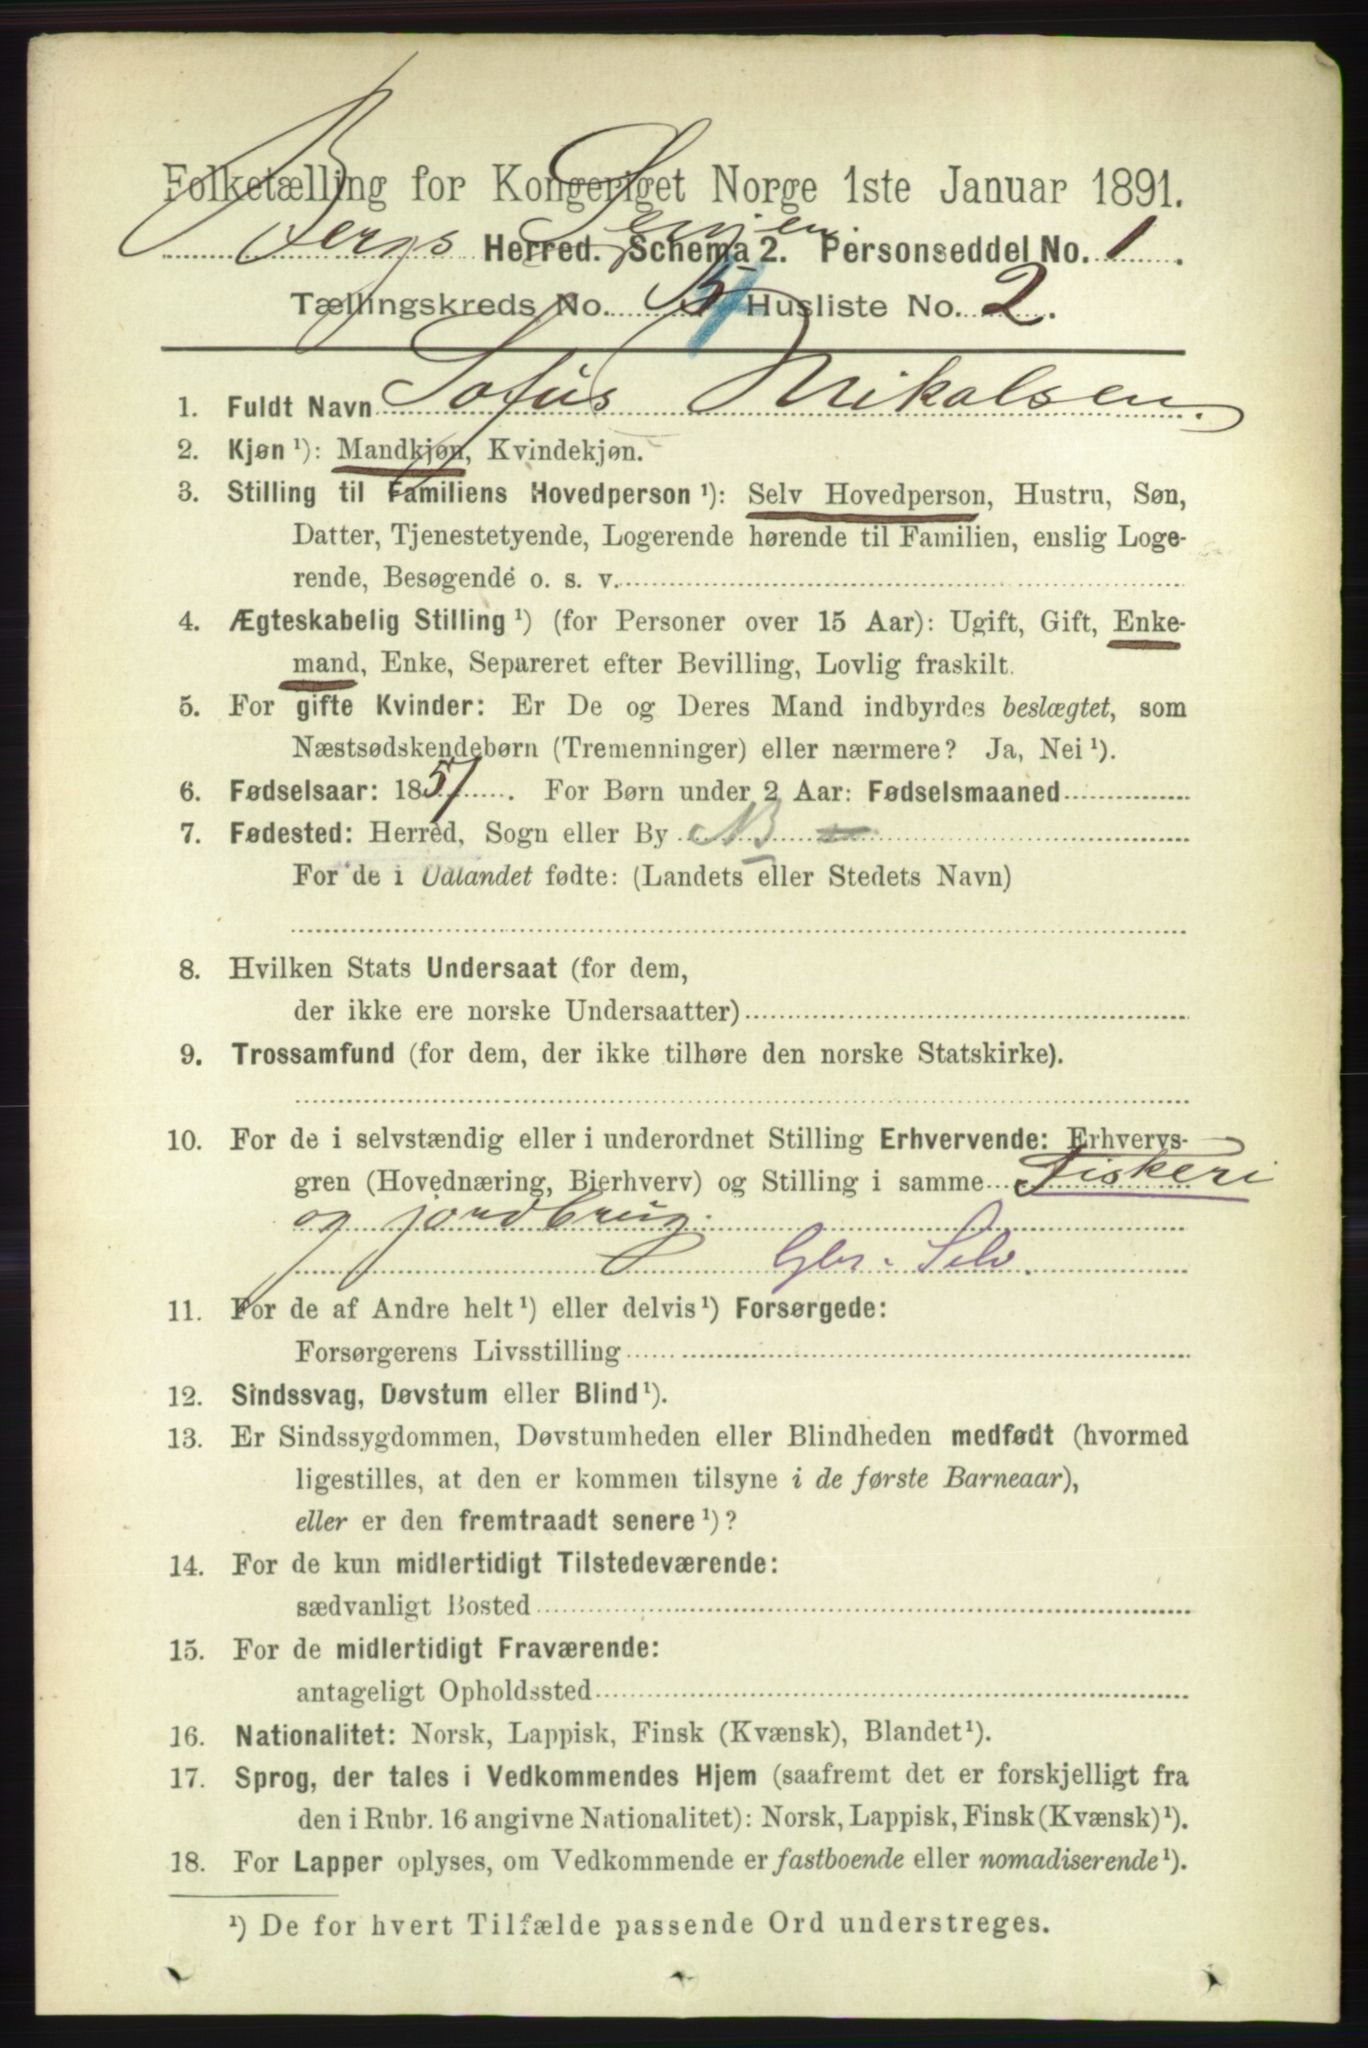 Folketælling for Kongeriget Norge 1ste Januar 1891.
Bergs Herred. Senjen. Schema 2. Personseddel No. 1.
Tællingskreds No. 5 Husliste No. 2.
1. Fuldt Navn Sofus Nikolsen.
2. Kjøn ¹): Mandkjøn, Kvindekjøn.
3. Stilling til Familiens Hovedperson ¹): Selv Hovedperson, Hustru, Søn,
Datter, Tjenestetyende, Logerende hørende til Familien, enslig Loge-
rende, Besøgende o. s. v.
4. Ægteskabelig Stilling ¹) (for Personer over 15 Aar): Ugift, Gift, Enke-
mand, Enke, Separeret efter Bevilling, Lovlig fraskilt.
5. For gifte Kvinder: Er De og Deres Mand indbyrdes beslægtet, som
Næstsødskendebørn (Tremenninger) eller nærmere? Ja, Nei ¹).
6. Fødselsaar: 1857. For Børn under 2 Aar: Fødselsmaaned
7. Fødested: Herred, Sogn eller By NB
For de i Udlandet fødte: (Landets eller Stedets Navn)
8. Hvilken Stats Undersaat (for dem,
der ikke ere norske Undersaatter)
9. Trossamfund (for dem, der ikke tilhøre den norske Statskirke).
10. For de i selvstændig eller i underordnet Stilling Erhvervende: Erhvervs-
gren (Hovednæring, Bierhverv) og Stilling i samme Fiskeri
og jordbrug.
Gbr. Selv.
11. For de af Andre helt ¹) eller delvis ¹) Forsørgede:
Forsørgerens Livsstilling
12. Sindssvag, Døvstum eller Blind ¹).
13. Er Sindssygdommen, Døvstumheden eller Blindheden medfødt (hvormed
ligestilles, at den er kommen tilsyne i de første Barneaar),
eller er den fremtraadt senere ¹)?
14. For de kun midlertidigt Tilstedeværende:
sædvanligt Bosted
15. For de midlertidigt Fraværende:
antageligt Opholdssted
16. Nationalitet: Norsk, Lappisk, Finsk (Kvænsk), Blandet ¹).
17. Sprog, der tales i Vedkommendes Hjem (saafremt det er forskjelligt fra
den i Rubr. 16 angivne Nationalitet): Norsk, Lappisk, Finsk (Kvænsk) ¹).
18. For Lapper oplyses, om Vedkommende er fastboende eller nomadiserende ¹).
¹) De for hvert Tilfælde passende Ord understreges.